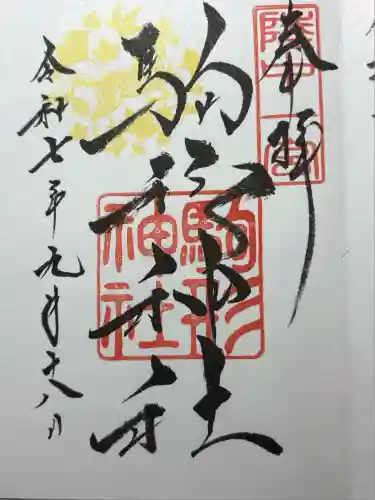 奉拝
陸中一宮
駒形神社
駒形
神社
令和七年九月八日